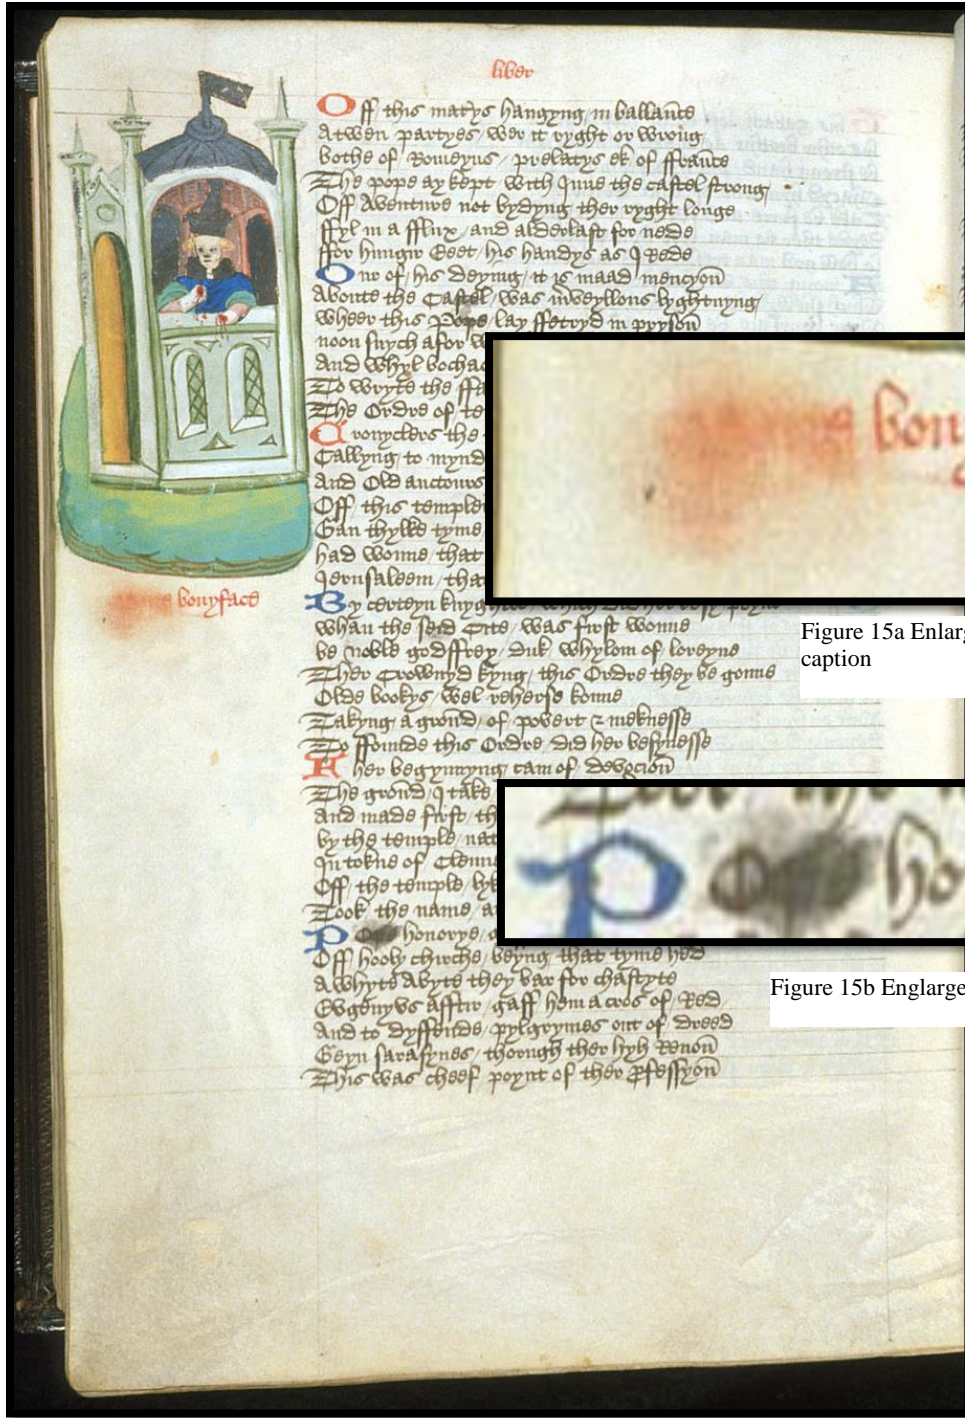 liber
Off this matys hangyng in ballaūce
Atwen partyes wer it ryght or wrōng
bothe of Romeyns / prelatys ek of ffraūce
The pope ay kept with Inne the castel strong
Off Aventure not bydyng ther ryght longe
ffyl in a fflux / and alderlast for nede
ffor hungir Eeet / his handys as I Rede
Our of his deying / it is maad mencyoū
Aboute the Castel / was mveyllous lyghtnyng
wheer this Pope / lay ffetryd in prysoū
noon snych afor w
And whyl bochac
To wryte the ffa
The Ordre of te
Cronyclers the
Callyng to mynd
And Old auctours
Off this temple
Gan thylke tyme
had wonne / that
Jerusaleem / that
By certeyn knyg
bonyface
bon
whan the seid Cite / was first wonne
be noble godffrey / duk whylom of loreyne
Ther Crownyd kyng / this Ordre they be gonne
Olde bookys / wel reherse konne
Takyng a groūd / of povert & meknesse
To ffounde this Ordre / did her besynesse
Her begynnyng cam of / devocioū
The groūd / I take
And made first / th
by the temple / nat
In tokne of Clenn
Off / the temple / lyk
Took the name / a
P honorye /
P ho
Off hooly chirche / beyng that tyme hed
A whyte Abyte they bar for chastyte
Evgenyvs afftir / gaff hem a cros of Red
And to dyffende / pylgrymes out of dreed
Geyn sarasynes / thorugh ther hyh Renoū
This was cheef poynt of ther Pfessyoū
Figure 15a Enlarg
caption
Figure 15b Englarge